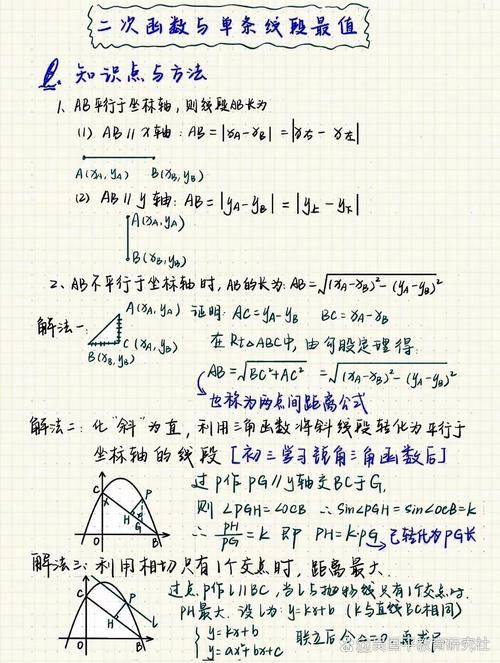 二次函数与单条线段最值
知识点与方法
1、AB平行于坐标轴，则线段AB长为
(1) AB∥x轴：AB=|xA-xB|=|x右-x左|
A(xA,yA) B(xB,yB)
(2) AB∥y轴：AB=|yA-yB|=|y上-y下|
A(xA,yA)
B(xB,yB)
2、AB不平行于坐标轴时，AB的长为：AB=√(xA-xB)²-(yA-yB)²
解法一：
A(xA,yA)
B(xB,yB)
C(xA,yB)
证明：AC=yA-yB BC=xA-xB
在Rt△ABC中，由勾股定理得：
AB=√BC²+AC² =√(xA-xB)²-(yA-yB)²
也称为两点间距离公式
解法二：化"斜"为直，利用三角函数将斜线段转化为平行于
坐标轴的线段［初三学习锐角三角函数后］
C P H G O B
过P作PG∥y轴交BC于G，
则∠PGH=∠OCB ∴sin∠PGH=sin∠OCB=k
∴PH/PG=k 即 PH=k·PG 已转化为PG长
解法三：利用相切只有1个交点时，距离最大．
C P H B l
过点P作l∥BC，当l与抛物线只有1个交点时，
PH最大．设l为：y=kx+b（k与直线BC相同）
{y=kx+b
y=ax²+bx+c
联立后令△=0，再求